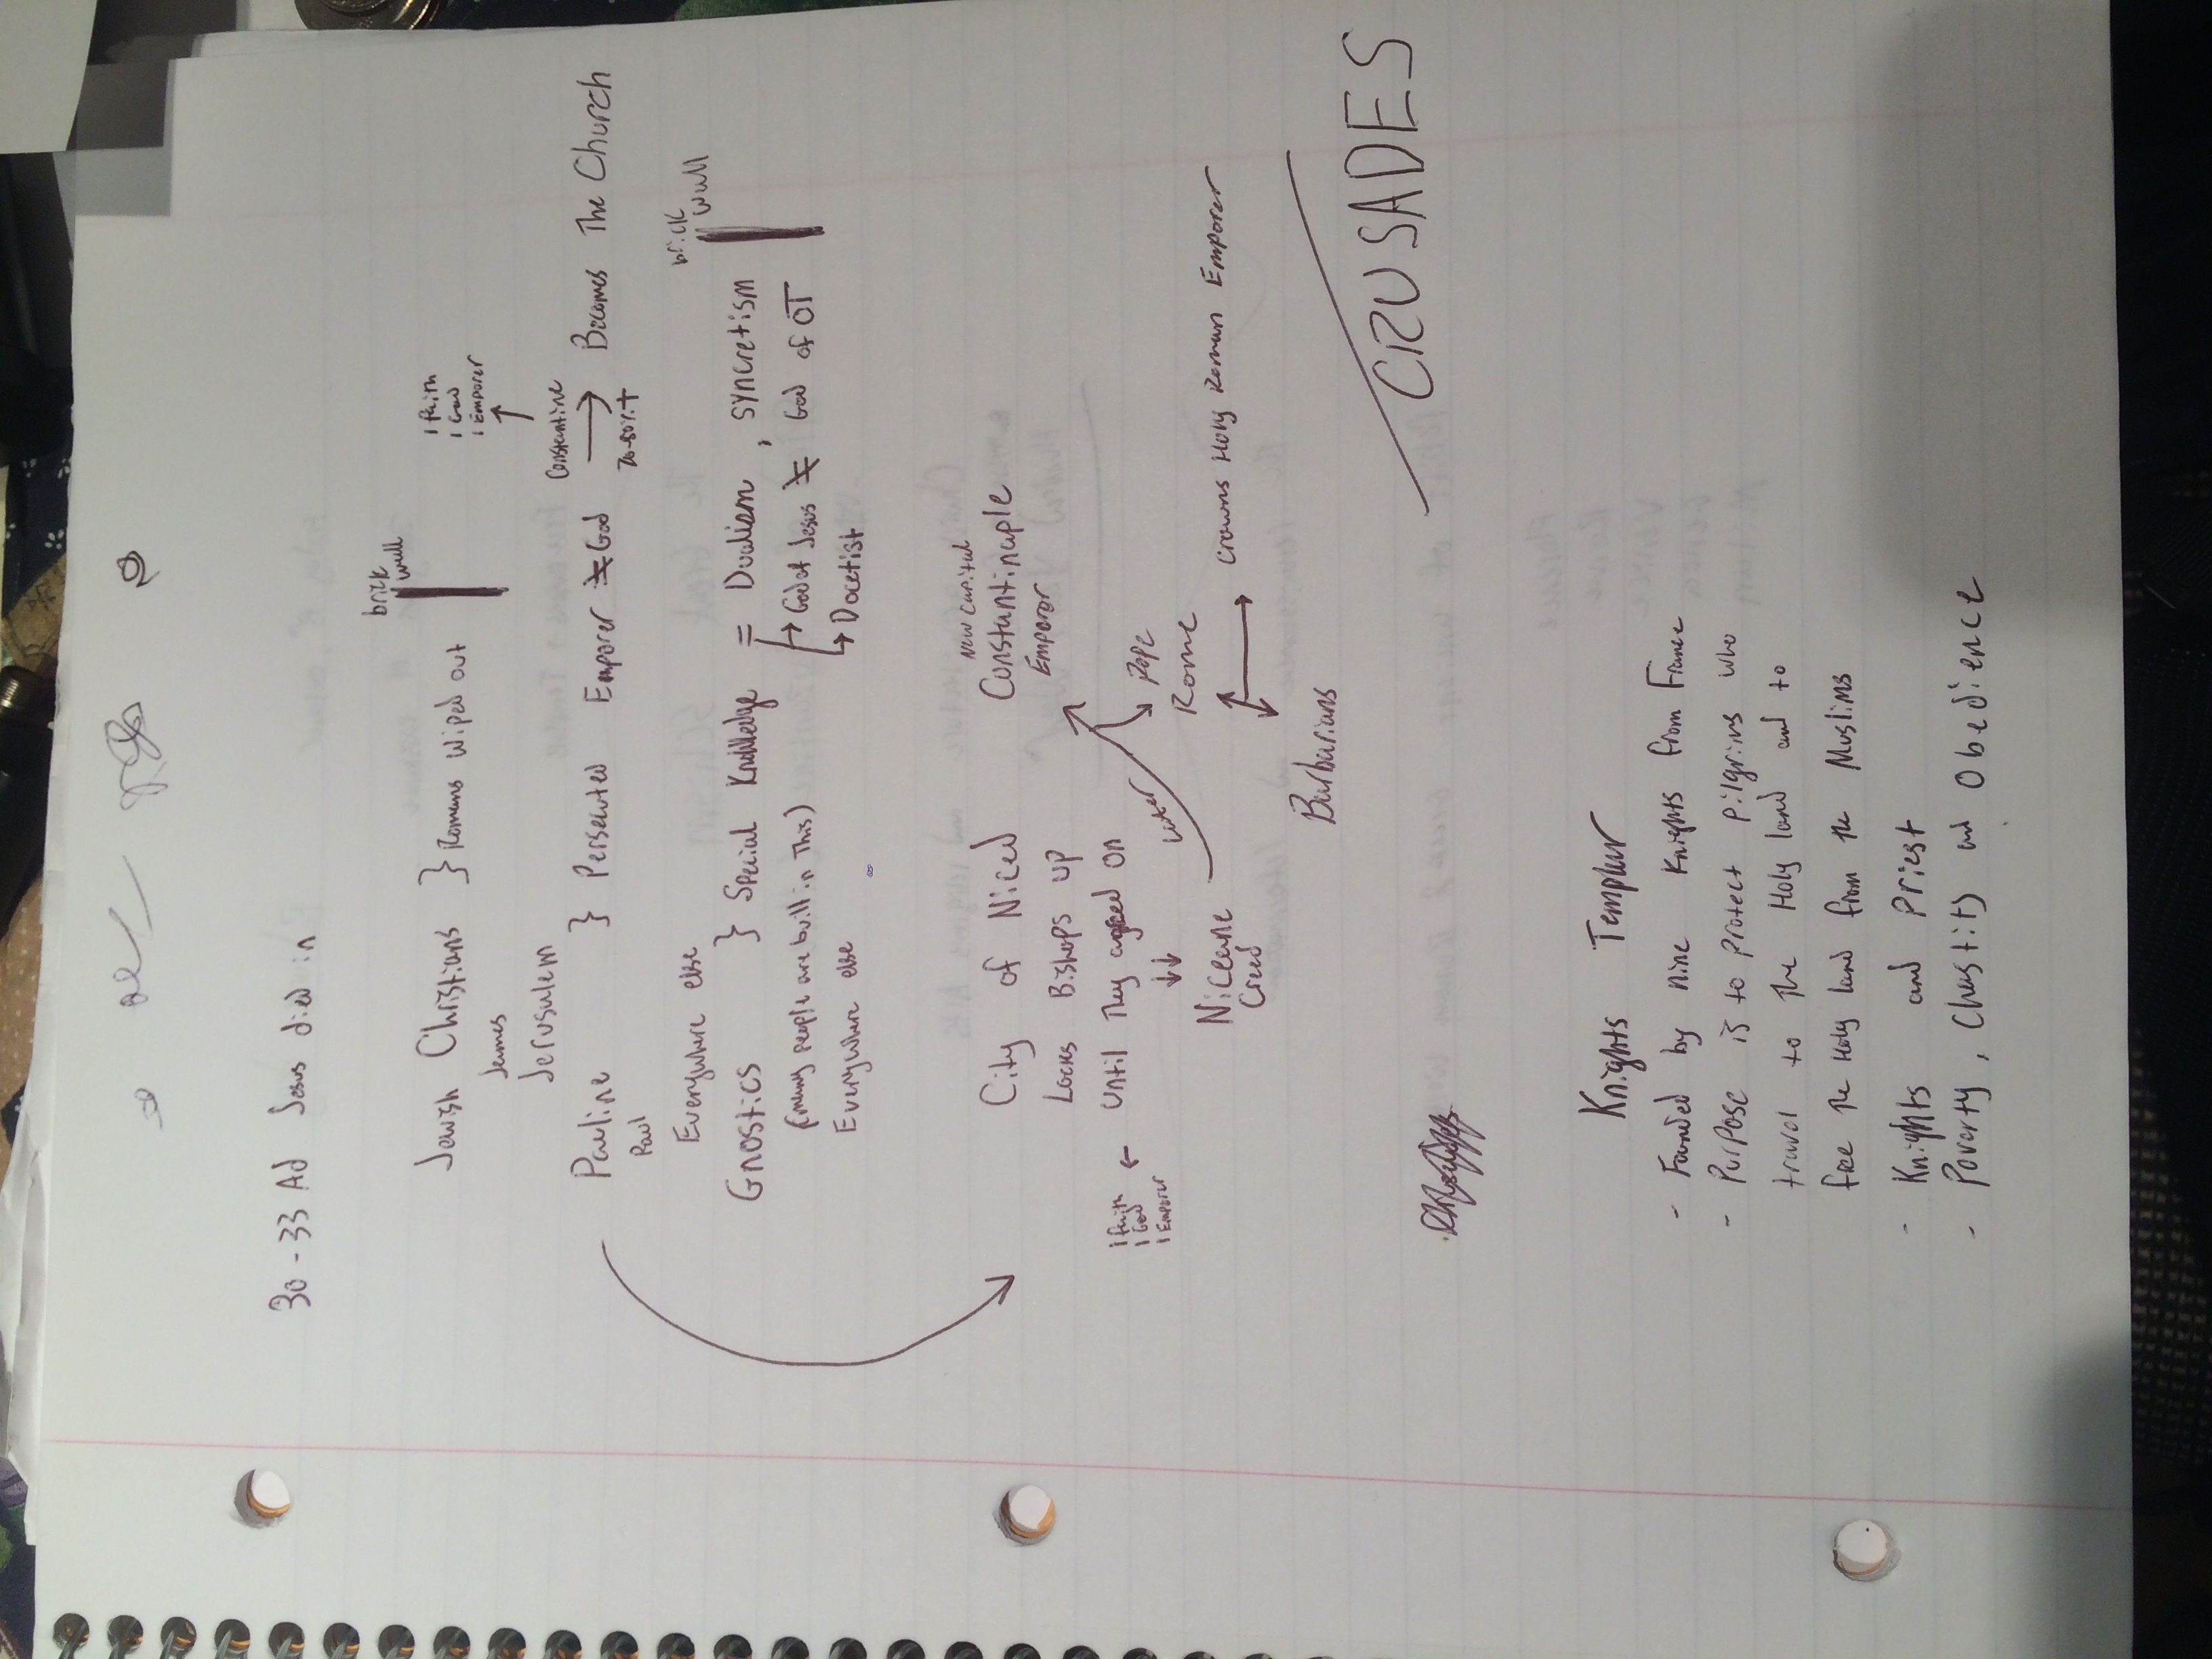 30-33 AD Jesus died in
brick
wall
Jewish Christians } Romans wiped out
James
Jerusalem
1 faith
1 God
1 Emporer
Constantine
Pauline } Persecuted Emporer ≠ God → Becomes The Church
Paul
70-80%+
Everywhere else
brick
wall
Gnostics } Special Knowledge = Dualism, syncretism
(many people are bull in This) → God of Jesus ≠ God of OT
Everywhere else → Docetist
New capital
City of Nicea Constantinaple
Locks Bishops up Emporor
until They agreed on
Later
Pope
Rome
1 faith
1 God
1 Emporer
Niceane
Creed
Crowns Holy Roman Emporer
Barbarians
CRUSADES
Knights Templar
- Founded by nine Knights from France
- Purpose is to protect pilgrims who
travel to the Holy land and to
free the Holy land from the Muslims
- Knights and Priest
- Poverty, Chastity and Obedience